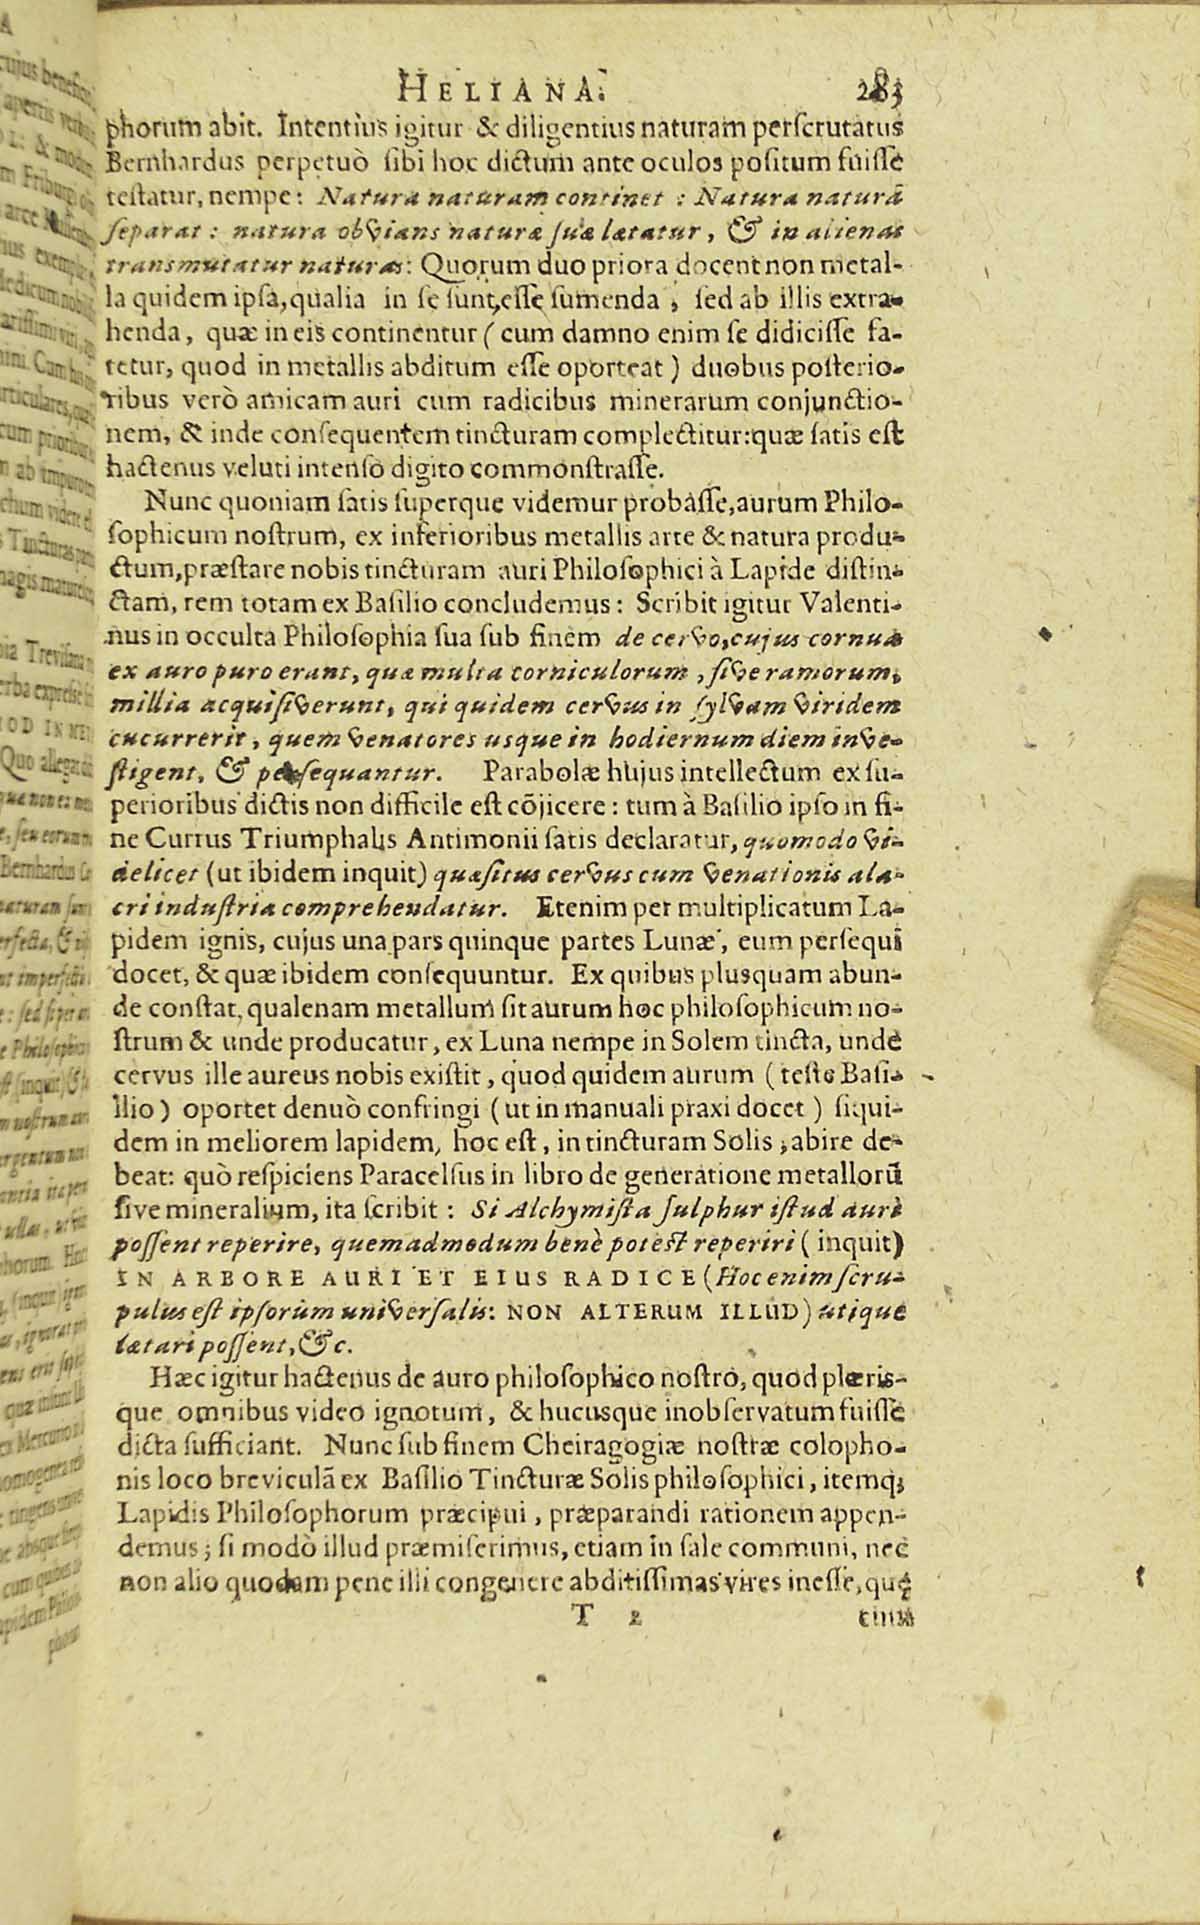 HELIANA. 283
phorum abit. Intentiùs igitur & diligentius naturam perscrutatus
Bernhardus perpetuò sibi hoc dictum ante oculos positum fuisse
testatur, nempe: Natura naturam continet : Natura naturã
separat : natura obvians naturæ suæ lætatur, & in alienas
transmutatur naturas: Quorum duo priora docent non metal-
la quidem ipsa, qualia in se sunt, esse sumenda, sed ab illis extra-
henda, quæ in eis continentur ( cum damno enim se didicisse fa-
tetur, quod in metallis abditum esse oporteat ) duobus posterio-
ribus verò amicam auri cum radicibus minerarum conjunctio-
nem, & inde consequentem tincturam complectitur: quæ satis est
hactenus veluti intenso digito commonstrasse.
Nunc quoniam satis superque videmur probasse, aurum Philo-
sophicum nostrum, ex inferioribus metallis arte & natura produ-
ctum, præstare nobis tincturam auri Philosophici à Lapide distin-
ctam, rem totam ex Basilio concludemus : Scribit igitur Valenti-
nus in occulta Philosophia sua sub finem de cervo, cujus cornua
ex auro puro erant, quæ multa corniculorum, sive ramorum,
millia acquisiverunt, qui quidem cervus in sylvam viridem
cucurrerit, quem venatores usque in hodiernum diem inve-
stigent, & persequantur. Parabolæ hujus intellectum ex su-
perioribus dictis non difficile est cõjicere : tum à Basilio ipso in fi-
ne Currus Triumphalis Antimonii satis declaratur, quomodo vi-
delicet (ut ibidem inquit) quæsitus cervus cum venationis ala-
cri industria comprehendatur. Etenim per multiplicatum La-
pidem ignis, cujus una pars quinque partes Lunæ, eum persequi
docet, & quæ ibidem consequuntur. Ex quibus plusquam abun-
de constat, qualenam metallum sit aurum hoc philosophicum no-
strum & unde producatur, ex Luna nempe in Solem tincta, unde
cervus ille aureus nobis existit, quod quidem aurum ( teste Basi-
lio ) oportet denuò confringi ( ut in manuali praxi docet ) siqui-
dem in meliorem lapidem, hoc est, in tincturam Solis, abire de-
beat: quò respiciens Paracelsus in libro de generatione metallorũ
sive mineralium, ita scribit : Si Alchymista sulphur istud auri
possent reperire, quemadmodum benè potest reperiri ( inquit)
IN ARBORE AURI ET EIUS RADICE (Hoc enim scru-
pulus est ipsorum universalis: NON ALTERUM ILLUD) utique
lætari possent, &c.
Hæc igitur hactenus de auro philosophico nostro, quod plæris-
que omnibus video ignotum, & hucusque inobservatum fuisse
dicta sufficiant. Nunc sub finem Cheiragogiæ nostræ colopho-
nis loco breviculã ex Basilio Tincturæ Solis philosophici, itemq;
Lapidis Philosophorum præcipui, præparandi rationem appen-
demus; si modò illud præmiserimus, etiam in sale communi, nec
non alio quodam pene illi congenere abditissimas vires inesse, quę
T 2 tinu